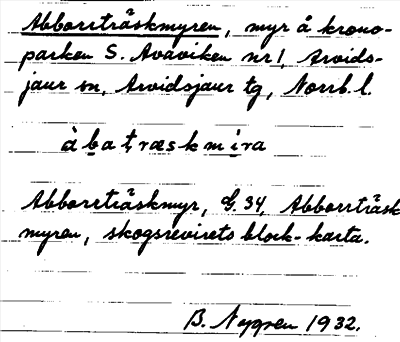 Abborrträskmyren, myr å krono-
parken S. Avaviken nr 1, Arvids-
jaur sn, Arvidsjaur tg, Norrb. l.
àbatræskmira
Abborrträskmyr, G. 34, Abborrträsk
myren, skogsrevirets block-karta.
B. Nygren 1932.